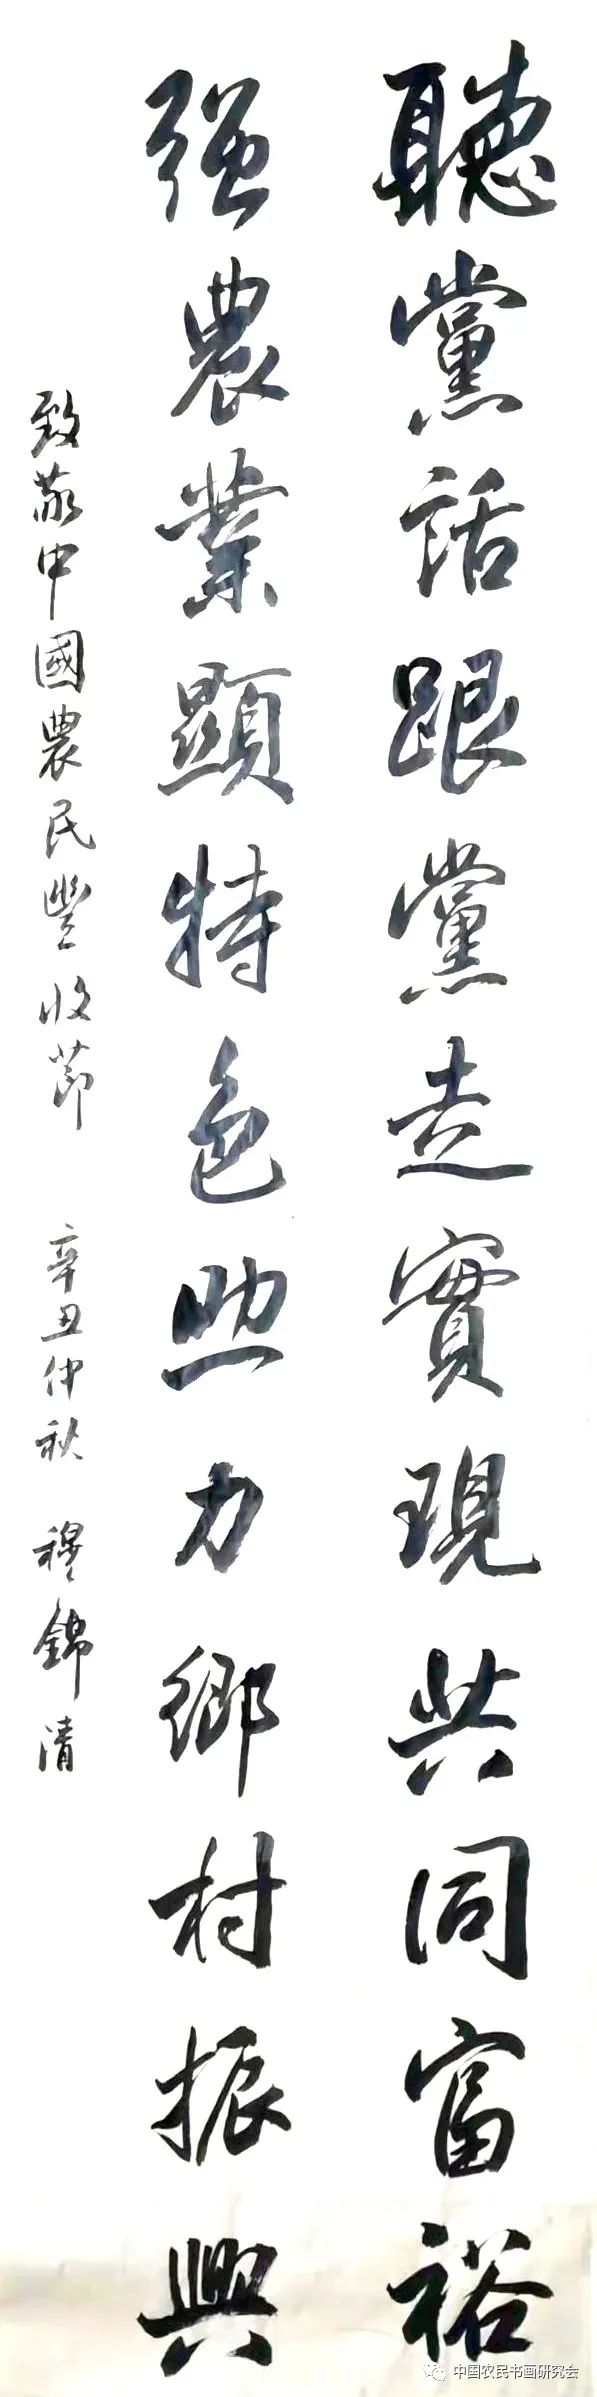 聽黨話跟黨走實現共同富裕
强農業顯特色助力鄉村振興
致敬中國農民豐收節 辛丑仲秋 穆錦清
中国农民书画研究会